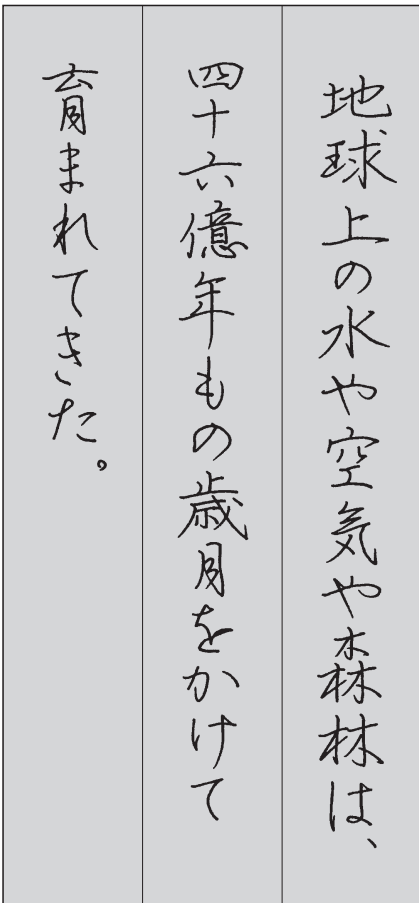 地球上の水や空気や森林は、
四十六億年もの歳月をかけて
育まれてきた。